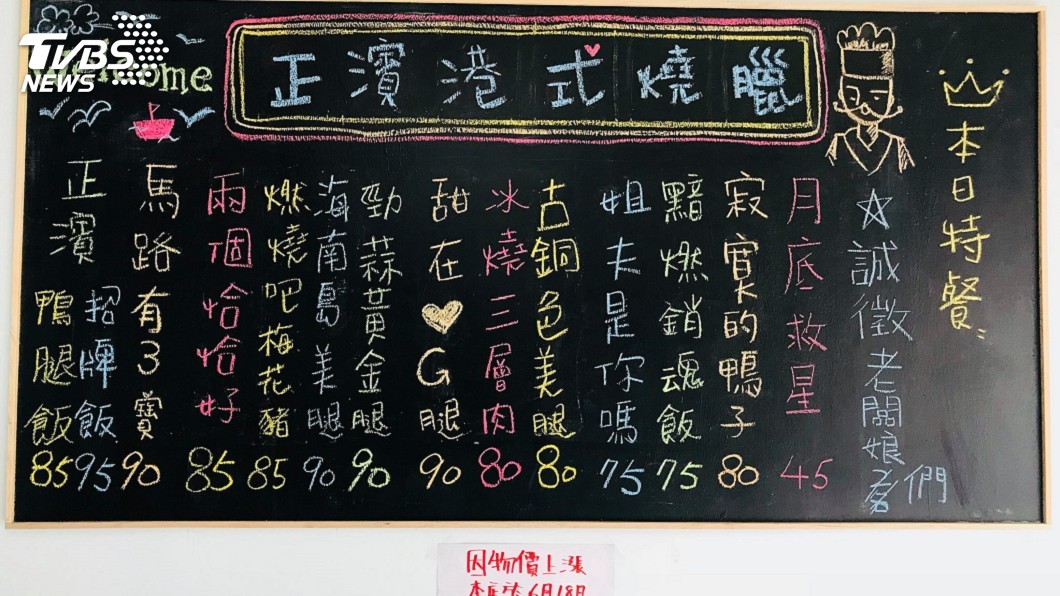 TVBS
NEWS
正濱港式燒臘
本日特餐:
☆誠徵老闆娘們
月底救星 45
寂寞的鴨子 80
黯燃銷魂飯 75
姐夫是你嗎 75
古銅色美腿 80
冰燒三層肉 80
甜在♡G腿 90
勁蒜黃金腿 90
海南島美腿 90
燃燒吧梅花豬 85
兩個恰恰好 85
馬路有3寶 90
正濱
招牌飯 95
鴨腿飯 85
因物價上漲
6月18日